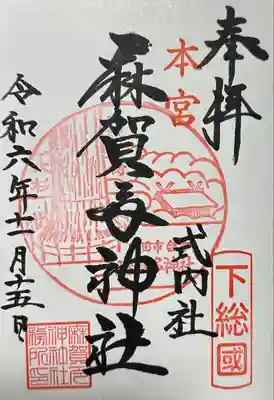 奉拝
本宮
式内社
下総國
麻賀多神社
令和六年十一月十五日
麻賀多
神社社
務所印